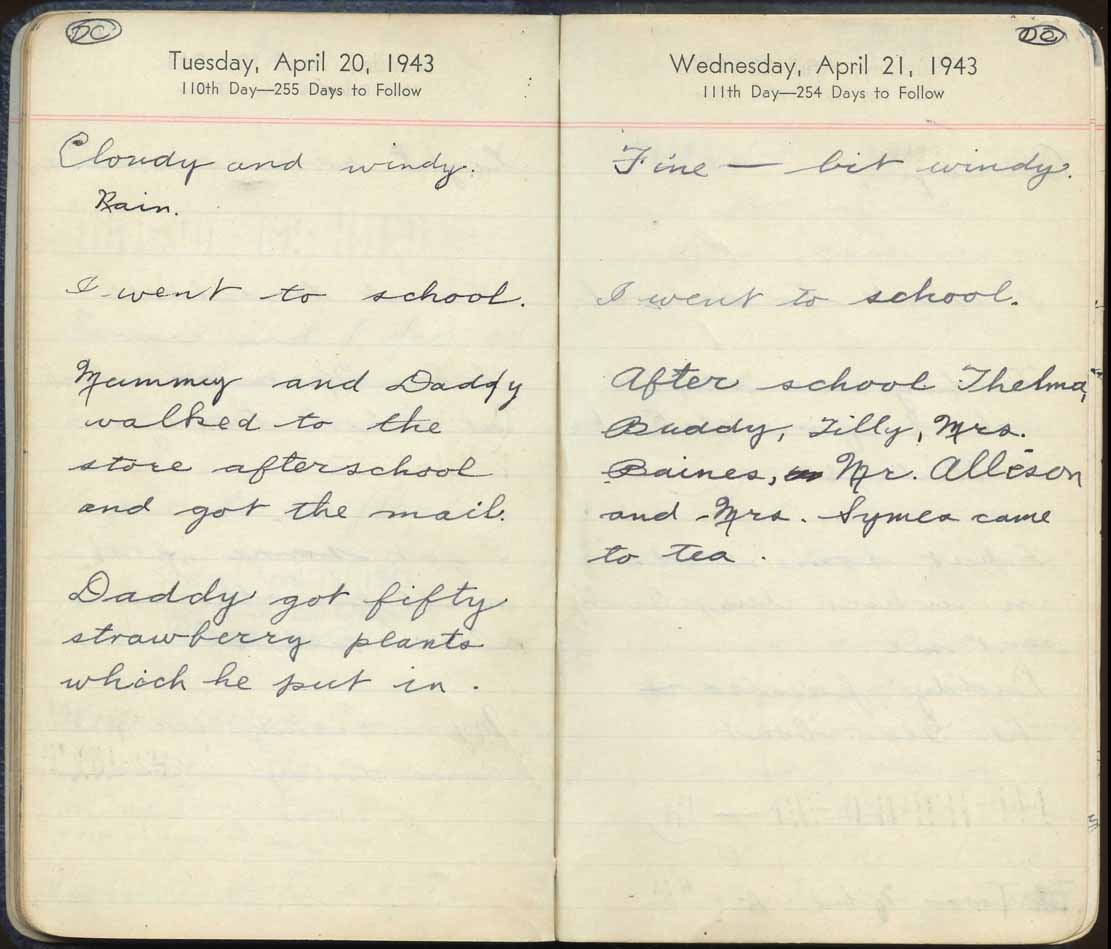 DC
Tuesday, April 20, 1943
110th Day—255 Days to Follow
Cloudy and windy.
Rain.
I went to school.
Mummy and Daddy
walked to the
store afterschool
and got the mail.
Daddy got fifty
strawberry plants
which he put in.
DC
Wednesday, April 21, 1943
111th Day—254 Days to Follow
Fine — bit windy.
I went to school.
After school Thelma,
Buddy, Tilly, Mrs.
Baines, Mr. Allison
and Mrs. Symes came
to tea.